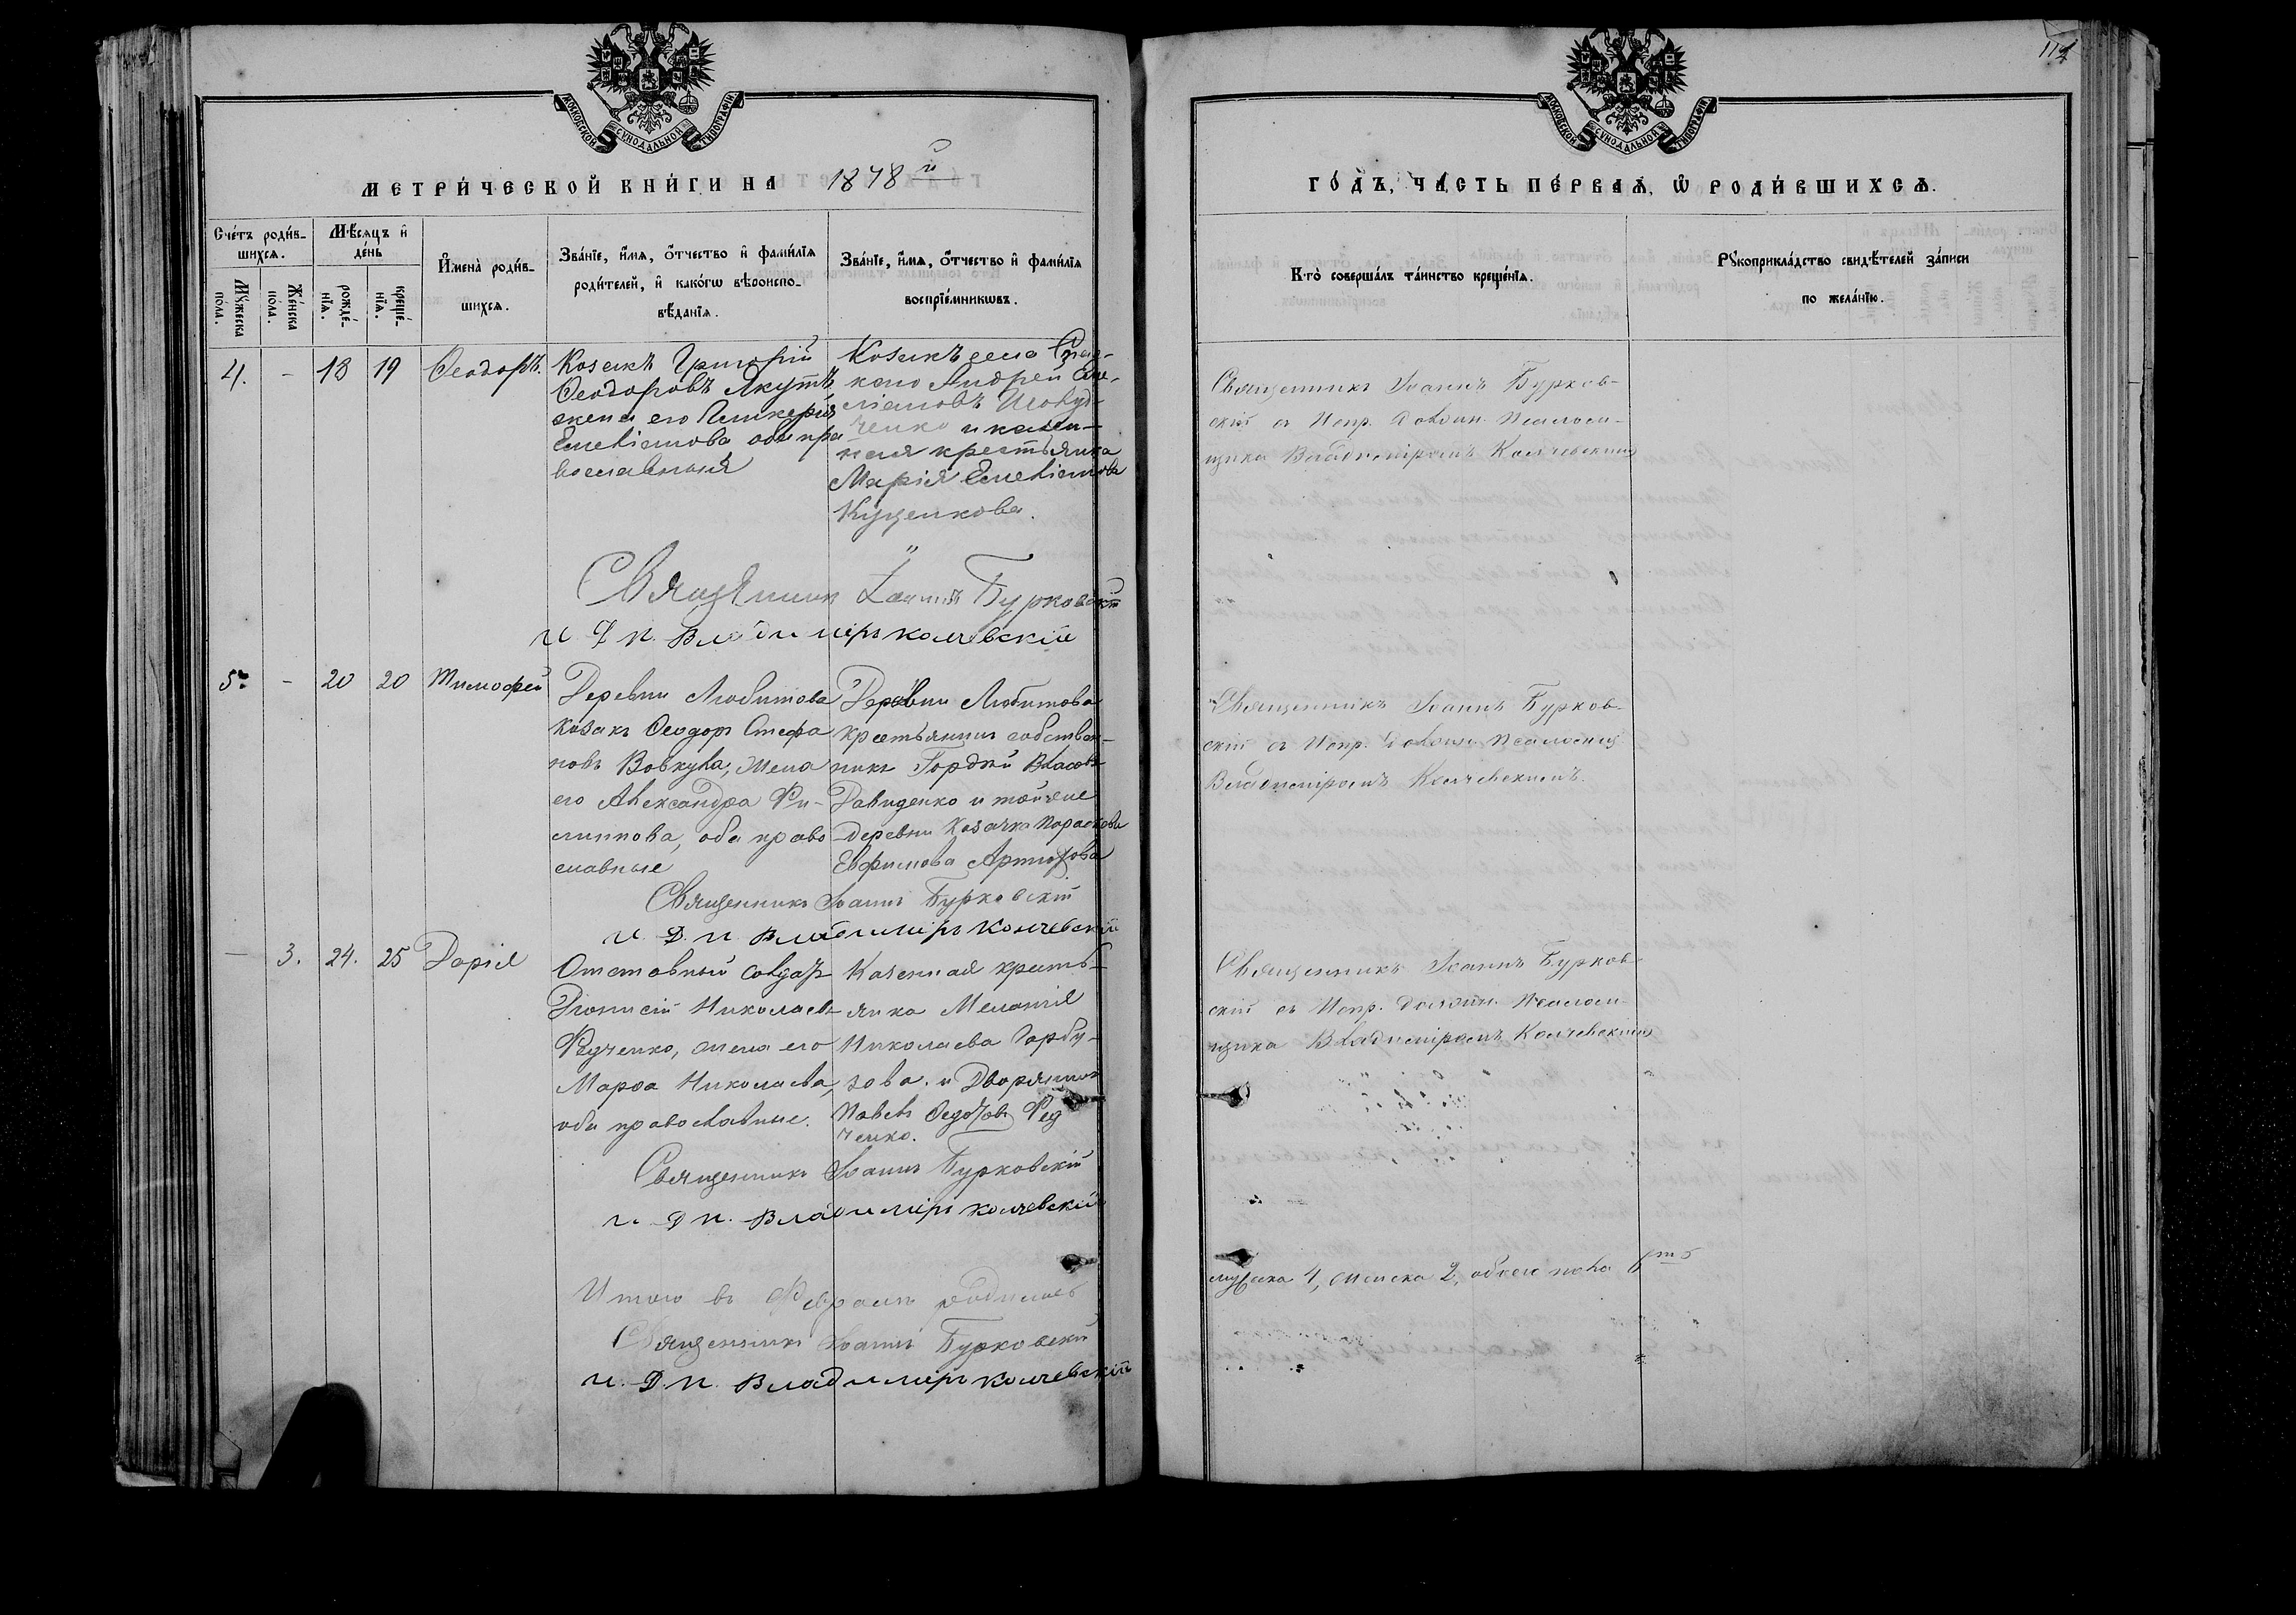 114
МОСКОВСКОЙ СУНОДАЛЬНОЙ ТИПОГРАФІИ
МЕТРИ́ЧЕСКОЙ КНИ́ГИ НА 1878й
Сче́тъ роди́в-
шихсѧ.
Мѣ́сяцъ и҆
де́нь
Мꙋ́жеска
по́ла.
Же́нска
по́ла.
рожде́-
нїѧ.
креще́-
нїѧ.
И҆мена̀ роди́в-
шихсѧ.
Зва́нїе, и҆́мѧ, ѻ҆́тчество и҆ фами́лїѧ
роди́телей, и҆ како́гѡ вѣроиспо-
вѣ́данїѧ.
Зва́нїе, и҆́мѧ, ѻ҆́тчество и҆ фами́лїѧ
воспрїе́мникѡвъ.
4. - 18 19 Ѳеодоръ.
Козакъ Григорій
Ѳеодоровъ Якутъ
жена его Гликерія
Емеліанова оба пра
вославныя
Козакъ села
Андрей Еме-
ліановъ
ченко и казен-
ная крестьянка
Марія Емеліанова
Куценкова.
Священникъ Іоаннъ Бурковскій
И Д П. Владиміръ Колчевскій
5. - 20 20 Тимофей
Деревни Любитова
козакъ Ѳеодоръ Стефа
новъ Вовкула, жена
его Александра Фи-
липпова, оба право
славные
Деревни Любитова
крестьянинъ собствен-
никъ Гордѣй Власовъ
Давиденко и той же
деревни Козачка Параскева
Евфимова Артюхова
Священникъ Іоаннъ Бурковскій
И. Д. П Владиміръ Колчевскій
— 3. 24. 25 Дарія
Отставный солдатъ
Діонисій Николаевъ
Редченко, жена его
Марѳа Николаева,
оба православные.
Казенная кресть-
янка Меланія
Николаева Гарбу-
зова. и Дворянинъ
Павелъ Ѳедотовъ Ред
ченко.
Священникъ Іоаннъ Бурковскій
И. Д П. Владиміръ Колчевскій
Итого въ Февралѣ родилось
Священникъ Іоаннъ Бурковскій
И. Д. П. Владиміръ Колчевскій
МОСКОВСКОЙ СУНОДАЛЬНОЙ ТИПОГРАФІИ
ГО́ДЪ, ЧА́СТЬ ПЕ́РВАѦ, Ѡ҆ РОДИ́ВШИХСѦ.
Кто̀ соверша́лъ та́инство креще́нїѧ.
Рꙋкоприкла́дство свидѣ́телей за́писи
по жела́нїю.
Священникъ Іоаннъ Бурков-
скій съ Испр. Должн. Псаломщ-
щика Владиміромъ Колчевскимъ
Священникъ Іоаннъ Бурков-
скій съ Испр. Должн. Псаломщ
Владиміромъ Колчевскимъ.
Священникъ Іоаннъ Бурков-
скій съ Испр. Должн. Псалом-
щика Владиміромъ Колчевскимъ
мужеска 4, женска 2, обоего пола 6